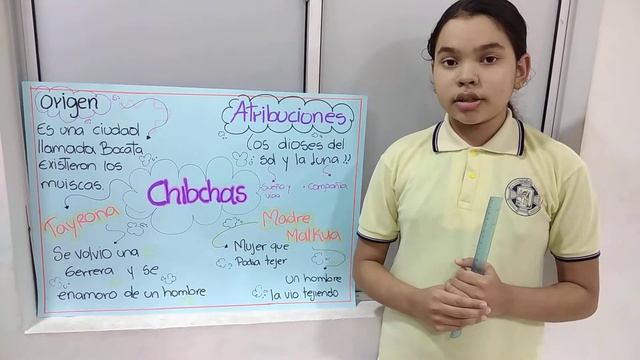 origen
Es una ciudad
llamada Bacata
Existieron los
muiscas
Atribuciones
Los dioses del
sol y la luna
Sueño y
vida
Compañia
Chibchas
Tayrona
Se volvio una
Gerrera y se
enamoro de un hombre
Madre
Malkua
Mujer que
Podia tejer
un hombre
la vio tejiendo